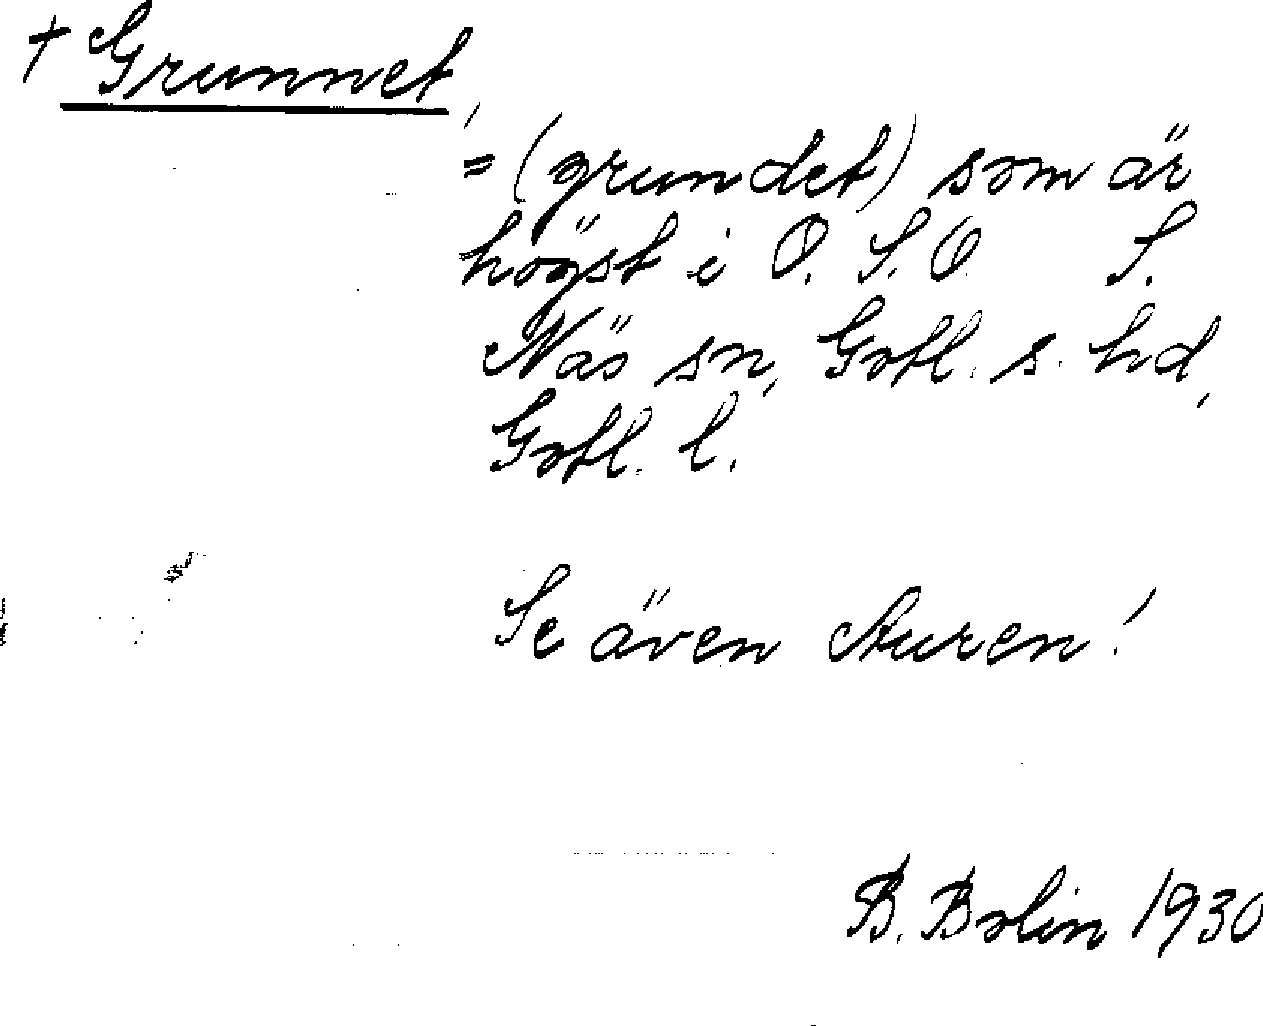 + Grunnet,
= (grundet) som är
högst i O. S.O S.
Näs sn, Gotl. s. hd,
Gotl. l.
Se även Auren!
B. Bolin 1930